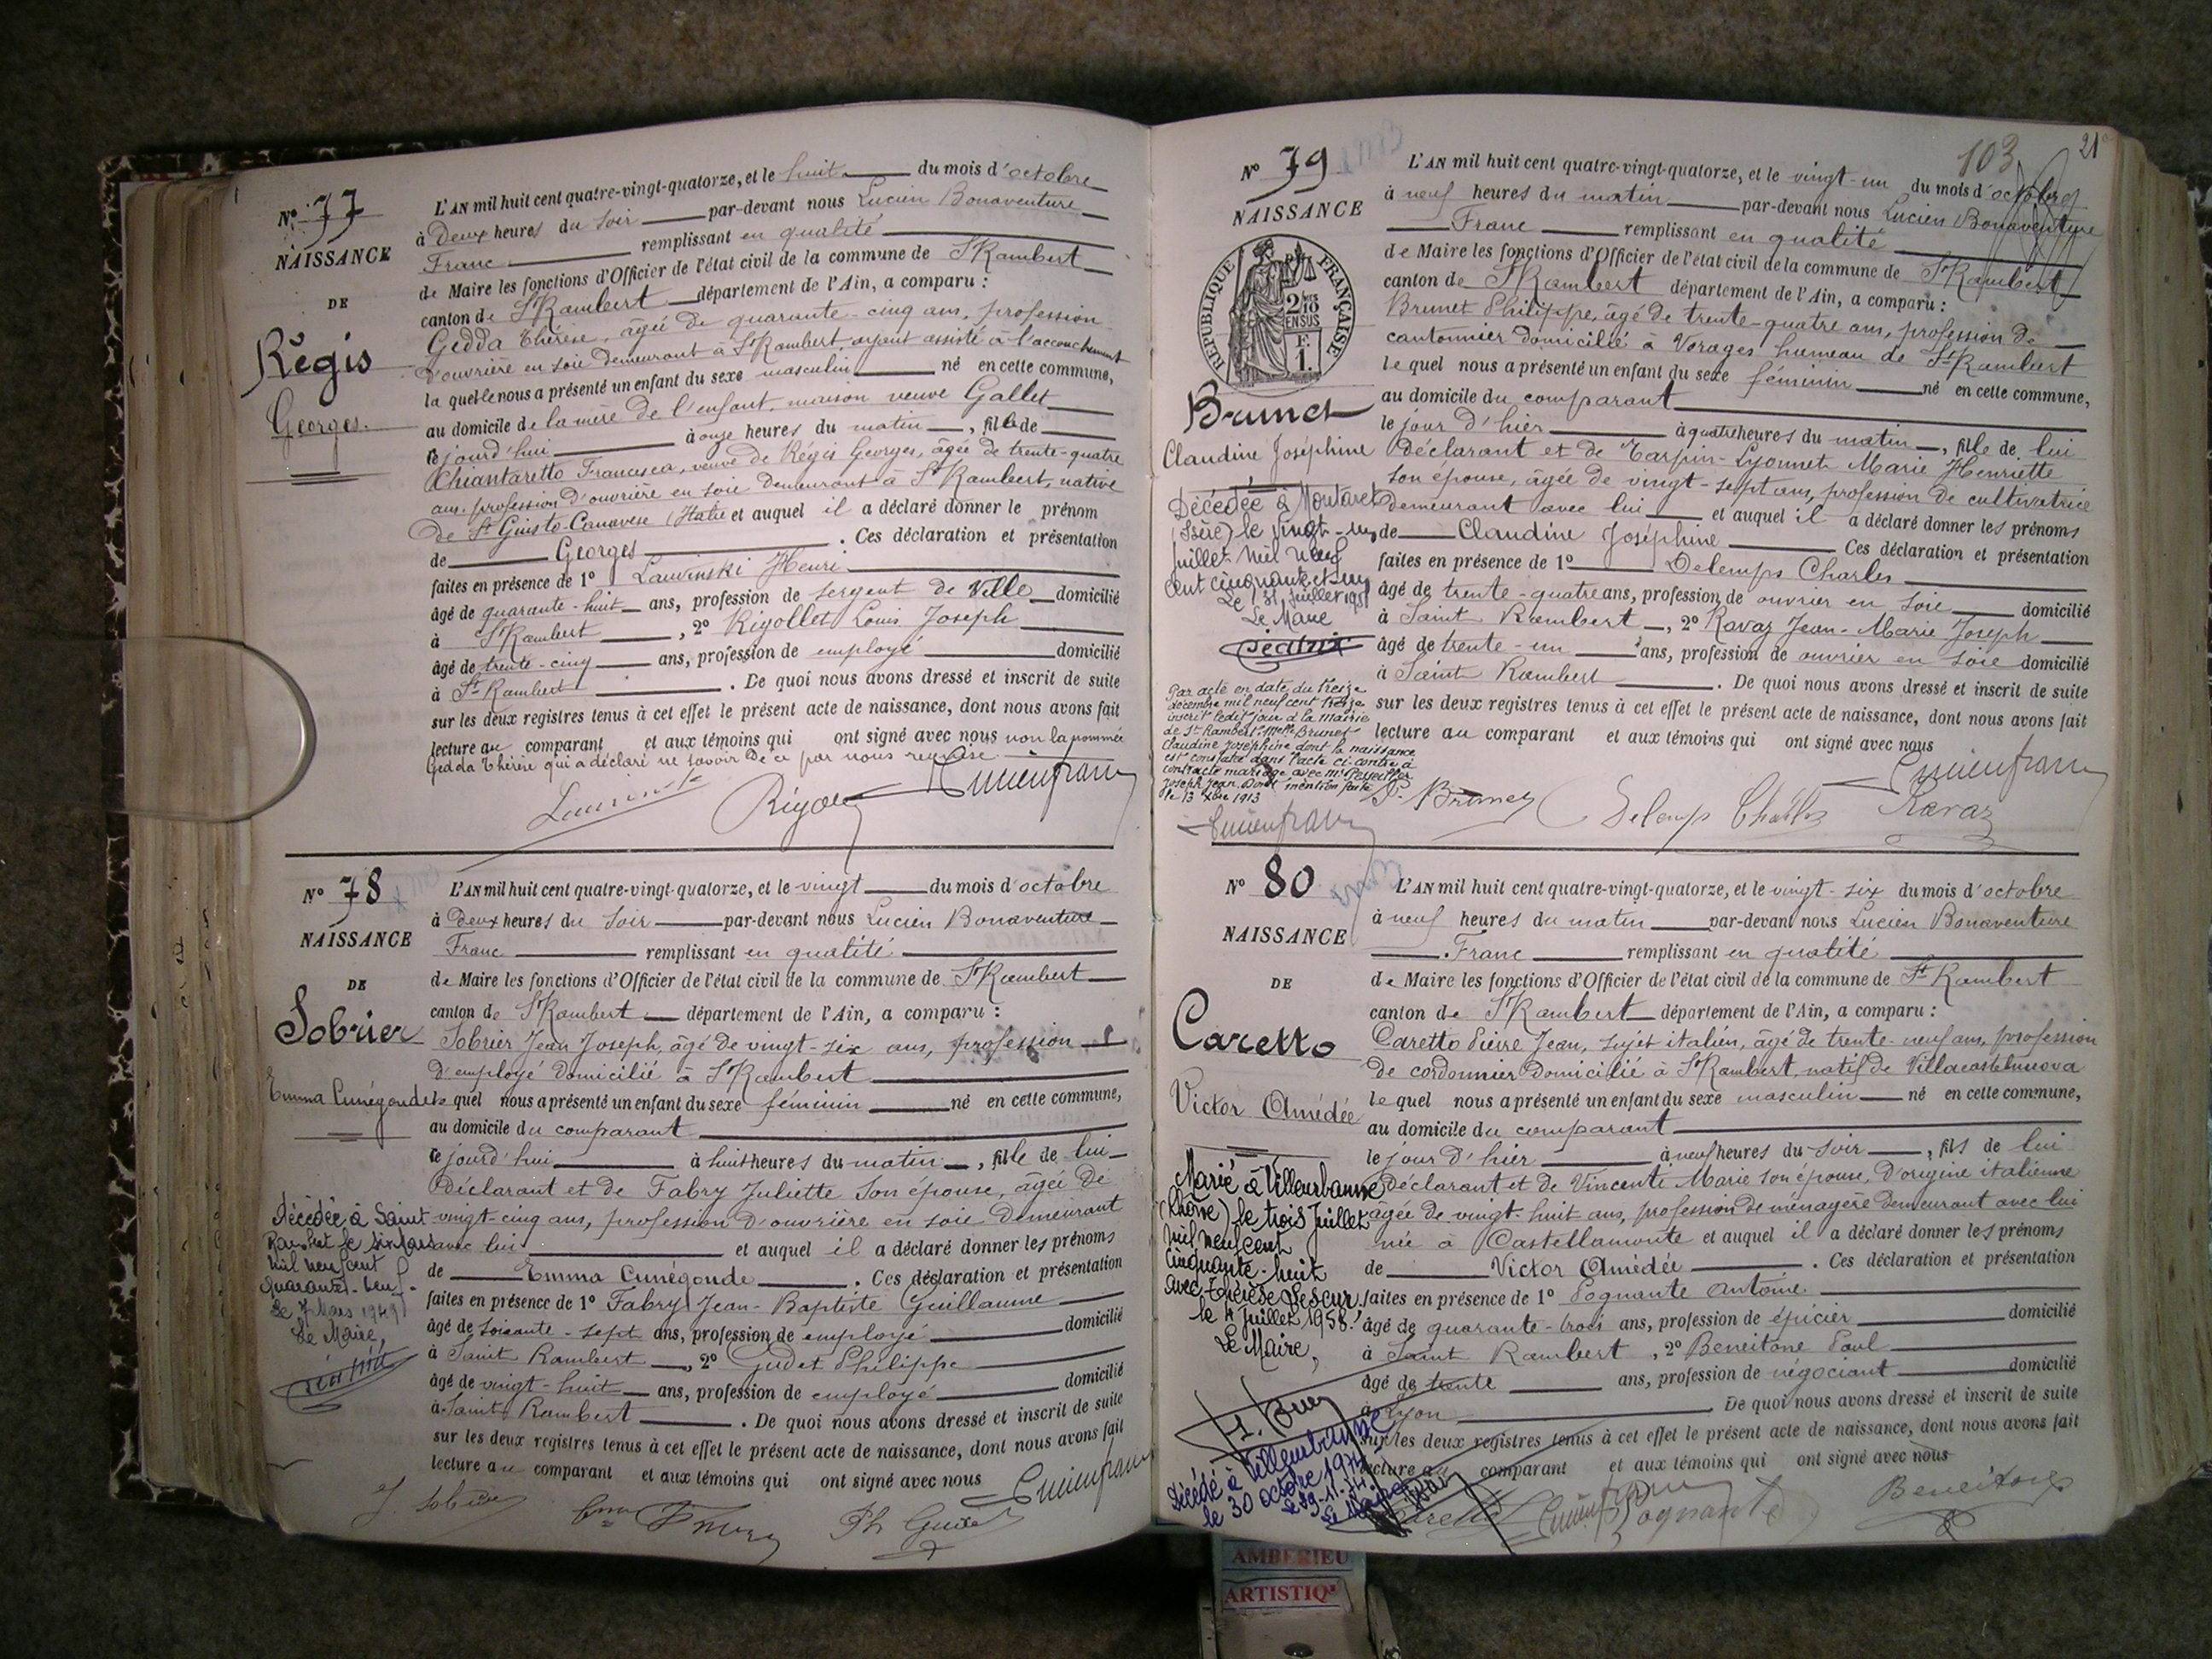 N° 77
NAISSANCE
DE
Régis
Georges.
L'AN mil huit cent quatre-vingt-quatorze, et le huit du mois d'octobre
à Deux heures du soir par-devant nous Lucien Bonaventure
Franc remplissant en qualité
de Maire les fonctions d'Officier de l'état civil de la commune de St Rambert
canton de St Rambert département de l'Ain, a comparu :
Gedda Thérèse, âgée de quarante-cinq ans, profession
d'ouvrière en soie demeurant à St Rambert ayant assisté à l'accouchement
la quelle nous a présenté un enfant du sexe masculin né en cette commune,
au domicile de la mère de l'enfant, maison veuve Gallet
ce jourd'hui à onze heures du matin, fils de
Chiantaretto Francesca, veuve de Régis Georges, âgée de trente-quatre
ans, profession d'ouvrière en soie demeurant à St Rambert, native
de St Giusto-Canavese (Italie et auquel il a déclaré donner le prénom
de Georges. Ces déclaration et présentation
faites en présence de 1° Lawinski Henri
âgé de quarante-huit ans, profession de sergent de Ville domicilié
à St Rambert, 2° Rigollet Louis Joseph
âgé de trente-cinq ans, profession de employé domicilié
à St Rambert. De quoi nous avons dressé et inscrit de suite
sur les deux registres tenus à cet effet le présent acte de naissance, dont nous avons fait
lecture au comparant et aux témoins qui ont signé avec nous non la nommée
Gedda Thérèse qui a déclaré ne savoir de ce par nous requise
Lucienfranc
N° 78
NAISSANCE
DE
Sobrier
Emma Cunégonde
Décédée à Saint
Rambert le six mars
mil neuf cent
quarante-neuf
Le 7 Mars 1949
Le Maire,
L'AN mil huit cent quatre-vingt-quatorze, et le vingt du mois d'octobre
à Deux heures du soir par-devant nous Lucien Bonaventure
Franc remplissant en qualité
de Maire les fonctions d'Officier de l'état civil de la commune de St Rambert
canton de St Rambert département de l'Ain, a comparu :
Sobrier Jean Joseph, âgé de vingt-six ans, profession
d'employé domicilié à St Rambert
le quel nous a présenté un enfant du sexe féminin né en cette commune,
au domicile du comparant
ce jourd'hui à huit heures du matin, fille de lui
Déclarant et de Fabry Juliette son épouse, âgée de
vingt-cinq ans, profession d'ouvrière en soie demeurant
avec lui et auquel il a déclaré donner les prénoms
de Emma Cunégonde. Ces déclaration et présentation
faites en présence de 1° Fabry Jean-Baptiste Guillaume
âgé de soixante-sept ans, profession de employé domicilié
à Saint Rambert, 2° Gudet Philippe
âgé de vingt-huit ans, profession de employé domicilié
à Saint Rambert. De quoi nous avons dressé et inscrit de suite
sur les deux registres tenus à cet effet le présent acte de naissance, dont nous avons fait
lecture au comparant et aux témoins qui ont signé avec nous
Lucienfranc
103
21
N° 79
NAISSANCE
RÉPUBLIQUE FRANÇAISE
Brunet
Claudine Joséphine
Décédée à Montaret
(Isère) le vingt-un
juillet mil neuf
cent cinquante et un
Le 31 juillet 1951
Le Maire
Par acte en date du treize
décembre mil neuf cent treize
inscrit ledit jour à la mairie
de St Rambert, Melle Brunet
Claudine Joséphine dont la naissance
est constatée dans l'acte ci-contre à
contracté mariage avec Mr
Joseph Jean. Dont mention faite
le 13 Xbre 1913
Lucienfranc
L'AN mil huit cent quatre-vingt-quatorze, et le vingt-un du mois d'octobre
à neuf heures du matin par-devant nous Lucien Bonaventure
Franc remplissant en qualité
de Maire les fonctions d'Officier de l'état civil de la commune de St Rambert
canton de St Rambert département de l'Ain, a comparu :
Brunet Philippe, âgé de trente-quatre ans, profession de
cantonnier domicilié à Vorages hameau de St Rambert
le quel nous a présenté un enfant du sexe féminin né en cette commune,
au domicile du comparant
le jour d'hier à quatre heures du matin, fille de lui
Déclarant et de Tarpin-Lyonnet Marie Henriette
son épouse, âgée de vingt-sept ans, profession de cultivatrice
demeurant avec lui et auquel il a déclaré donner les prénoms
de Claudine Joséphine Ces déclaration et présentation
faites en présence de 1° Delemps Charles
âgé de trente-quatre ans, profession de ouvrier en soie domicilié
à Saint Rambert, 2° Ravaz Jean-Marie Joseph
âgé de trente-un ans, profession de ouvrier en soie domicilié
à Saint Rambert. De quoi nous avons dressé et inscrit de suite
sur les deux registres tenus à cet effet le présent acte de naissance, dont nous avons fait
lecture au comparant et aux témoins qui ont signé avec nous
Lucienfranc
P. Brunet Delemps Charles Ravaz
N° 80
NAISSANCE
DE
Caretto
Victor Amédée
Marié à Villeurbanne
(Rhône) le trois Juillet
mil neuf cent
cinquante-huit
avec Thérèse Lescur.
le 4 juillet 1958.
Le Maire,
Décédé à Villeurbanne
le 30 octobre 1974
L'AN mil huit cent quatre-vingt-quatorze, et le vingt-six du mois d'octobre
à neuf heures du matin par-devant nous Lucien Bonaventure
Franc remplissant en qualité
de Maire les fonctions d'Officier de l'état civil de la commune de St Rambert
canton de St Rambert département de l'Ain, a comparu :
Caretto Pierre Jean, sujet italien, âgé de trente-neuf ans, profession
de cordonnier domicilié à St Rambert, natif de Villacastelnuova
le quel nous a présenté un enfant du sexe masculin né en cette commune,
au domicile du comparant
le jour d'hier à neuf heures du soir, fils de lui
Déclarant et de Vincenti Marie son épouse, d'origine italienne
âgée de vingt-huit ans, profession de ménagère demeurant avec lui
née à Castellamonte et auquel il a déclaré donner les prénoms
de Victor Amédée. Ces déclaration et présentation
faites en présence de 1° Pognante Antoine
âgé de quarante-trois ans, profession de épicier domicilié
à Saint Rambert, 2° Beneitone Paul
âgé de trente ans, profession de négociant domicilié
à Lyon. De quoi nous avons dressé et inscrit de suite
sur les deux registres tenus à cet effet le présent acte de naissance, dont nous avons fait
lecture au comparant et aux témoins qui ont signé avec nous
Caretto Lucienfranc Pognante Beneitone
AMBERIEU
ARTISTIQ